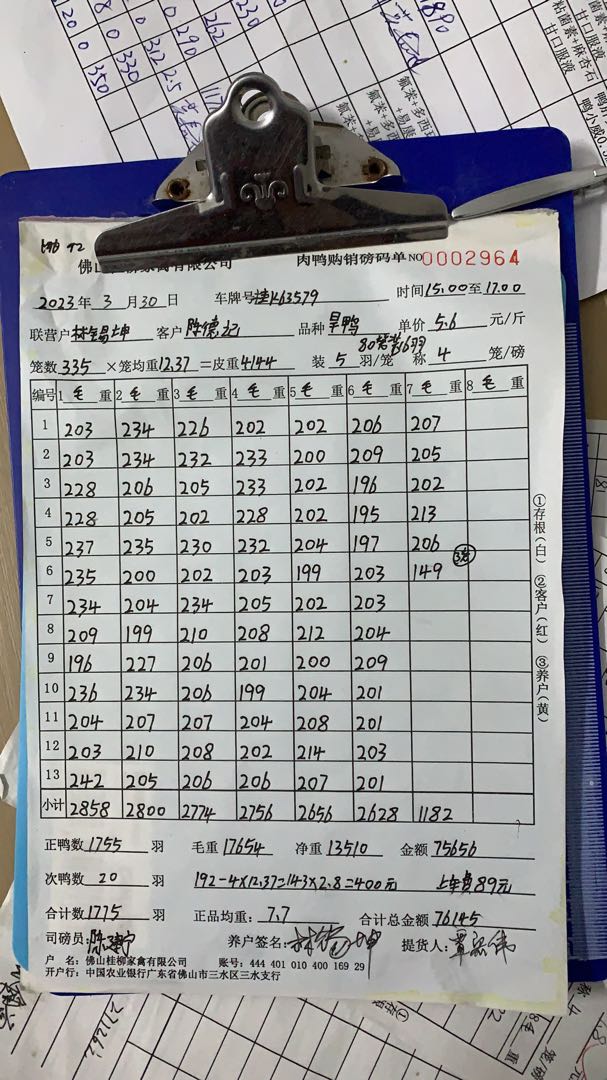 佛山桂柳家禽有限公司 肉鸭购销磅码单 NO 0002964
2023年 3 月 30 日 车牌号 桂K63579 时间 15.00 至 17.00
联营户 林锡坤 客户 品种 旱鸭 单价 5.6 元/斤
笼数 335 ×笼均重 12.37 =皮重 4144 装 5 羽/笼 称 4 笼/磅
编号 1 毛 重 2 毛 重 3 毛 重 4 毛 重 5 毛 重 6 毛 重 7 毛 重 8 毛 重
1 203 234 226 202 202 206 207
2 203 234 232 233 200 209 205
3 228 206 205 233 202 196 202
4 228 205 202 228 202 195 213
5 237 235 230 232 204 197 206
6 235 200 202 203 199 203 149
7 234 204 234 205 202 203
8 209 199 210 208 212 204
9 196 227 206 201 200 209
10 236 234 206 199 204 201
11 204 207 207 204 208 201
12 203 210 208 202 214 203
13 242 205 206 206 207 201
小计 2858 2800 2774 2756 2656 2628 1182
①存根(白) ②客户(红) ③养户(黄)
正鸭数 1755 羽 毛重 17654 净重 13510 金额 75656
次鸭数 20 羽 192-4×12.37=143×2.8=400元 上车费89元
合计数 1775 羽 正品均重: 7.7 合计总金额 76145
司磅员: 养户签名: 提货人:
户 名: 佛山桂柳家禽有限公司 账号: 444 401 010 400 169 29
开户行: 中国农业银行广东省佛山市三水区三水支行